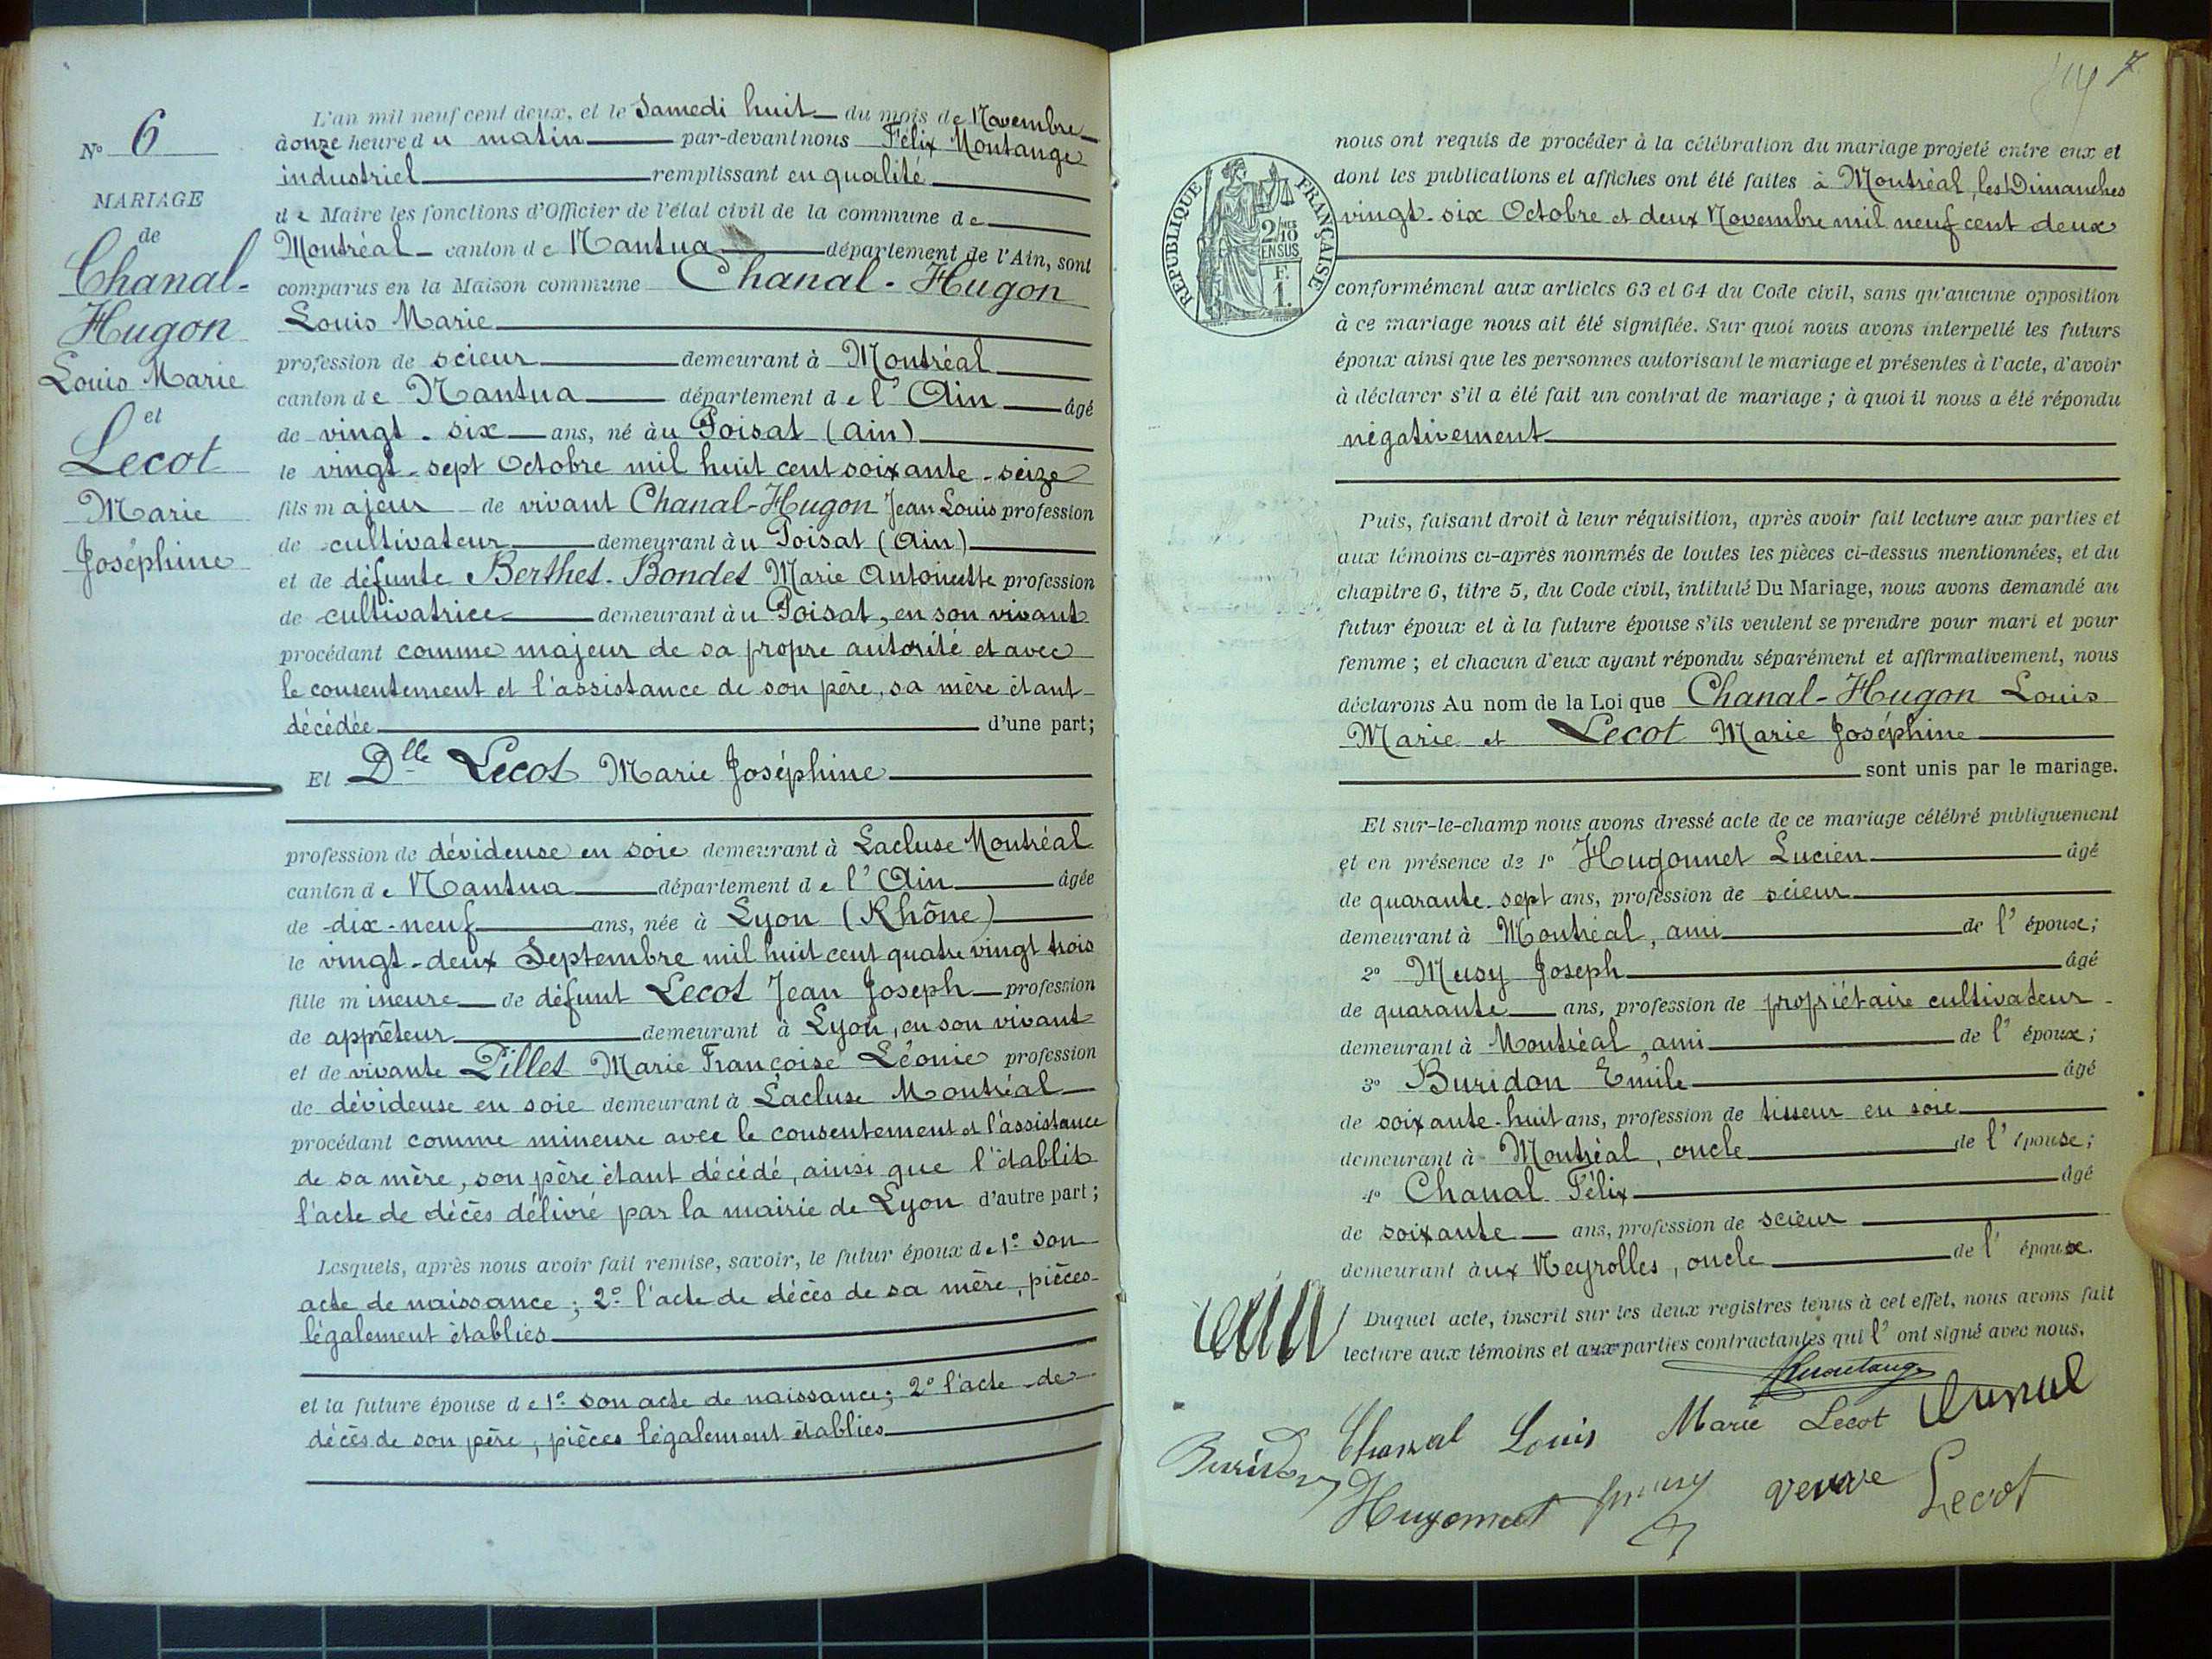 N° 6
MARIAGE
de
Chanal-
Hugon
Louis Marie
et
Lecot
Marie
Joséphine
L'an mil neuf cent deux, et le Samedi huit du mois de Novembre
à onze heure du matin par-devant nous Félix Montange
industriel remplissant en qualité
de Maire les fonctions d'Officier de l'état civil de la commune de
Montréal canton de Nantua département de l'Ain, sont
comparus en la Maison commune Chanal-Hugon
Louis Marie
profession de scieur demeurant à Montréal
canton de Nantua département de l'Ain âgé
de vingt-six ans, né àu Poisat (Ain)
le vingt-sept Octobre mil huit cent soixante-seize
fils majeur de vivant Chanal-Hugon Jean Louis profession
de cultivateur demeurant àu Poisat (Ain)
et de défunte Berthet-Bondet Marie Antoinette profession
de cultivatrice demeurant àu Poisat, en son vivant
procédant comme majeur de sa propre autorité et avec
le consentement et l'assistance de son père, sa mère étant
décédée d'une part;
Et Dlle Lecot Marie Joséphine
profession de dévideuse en soie demeurant à Lacluse Montréal
canton de Nantua département de l'Ain âgée
de dix-neuf ans, née à Lyon (Rhône)
le vingt-deux Septembre mil huit cent quatre vingt trois
fille mineure de défunt Lecot Jean Joseph profession
de apprêteur demeurant à Lyon, en son vivant
et de vivante Pillet Marie Françoise Léonie profession
de dévideuse en soie demeurant à Lacluse Montréal
procédant comme mineure avec le consentement et l'assistance
de sa mère, son père étant décédé, ainsi que l'établit
l'acte de décès délivré par la mairie de Lyon d'autre part;
Lesquels, après nous avoir fait remise, savoir, le futur époux de 1° son
acte de naissance; 2° l'acte de décès de sa mère, pièces
légalement établies
et la future épouse de 1° son acte de naissance; 2° l'acte de
décès de son père, pièces légalement établies
7
RÉPUBLIQUE FRANÇAISE
2/10 MES
EN SUS
F.
1.
nous ont requis de procéder à la célébration du mariage projeté entre eux et
dont les publications et affiches ont été faites à Montréal, les Dimanches
vingt-six Octobre et deux Novembre mil neuf cent deux
conformément aux articles 63 et 64 du Code civil, sans qu'aucune opposition
à ce mariage nous ait été signifiée. Sur quoi nous avons interpellé les futurs
époux ainsi que les personnes autorisant le mariage et présentes à l'acte, d'avoir
à déclarer s'il a été fait un contrat de mariage; à quoi il nous a été répondu
négativement
Puis, faisant droit à leur réquisition, après avoir fait lecture aux parties et
aux témoins ci-après nommés de toutes les pièces ci-dessus mentionnées, et du
chapitre 6, titre 5, du Code civil, intitulé Du Mariage, nous avons demandé au
futur époux et à la future épouse s'ils veulent se prendre pour mari et pour
femme; et chacun d'eux ayant répondu séparément et affirmativement, nous
déclarons Au nom de la Loi que Chanal-Hugon Louis
Marie et Lecot Marie Joséphine
sont unis par le mariage.
Et sur-le-champ nous avons dressé acte de ce mariage célébré publiquement
et en présence de 1° Hugonnet Lucien âgé
de quarante-sept ans, profession de scieur
demeurant à Montréal, ami de l'épouse;
2° Musy Joseph âgé
de quarante ans, profession de propriétaire cultivateur
demeurant à Montréal, ami de l'époux;
3° Buridon Emile âgé
de soixante-huit ans, profession de tisseur en soie
demeurant à Montréal, oncle de l'épouse;
4° Chanal Félix âgé
de soixante ans, profession de scieur
demeurant àux Neyrolles, oncle de l'époux.
Duquel acte, inscrit sur les deux registres tenus à cet effet, nous avons fait
lecture aux témoins et aux parties contractantes qui l'ont signé avec nous.
Chanal Louis Marie Lecot
Buridon Hugonnet Musy veuve Lecot